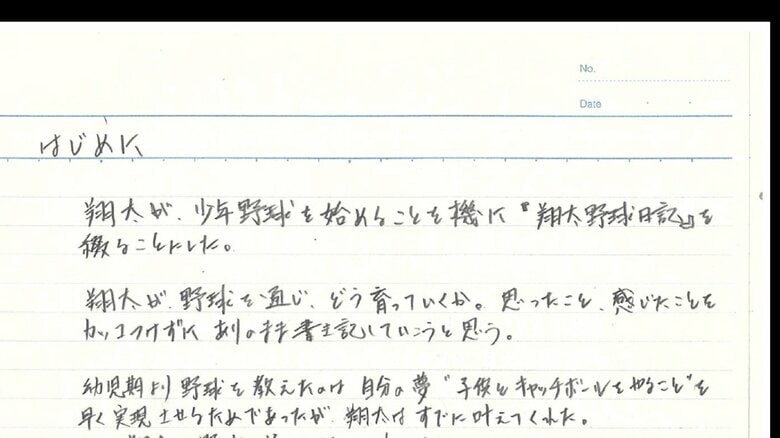 No.
Date
はじめに
翔太が、少年野球を始めることを機に『翔太野球日記』を
綴ることにした。
翔太が、野球を通じ、どう育っていくか。思ったこと、感じたことを
カッコつけずに ありのまま書き記していこうと思う。
幼児期より野球を教えたのは 自分の夢 “子供とキャッチボールをやること”を
早く実現させるためであったが、翔太はすでに叶えてくれた。